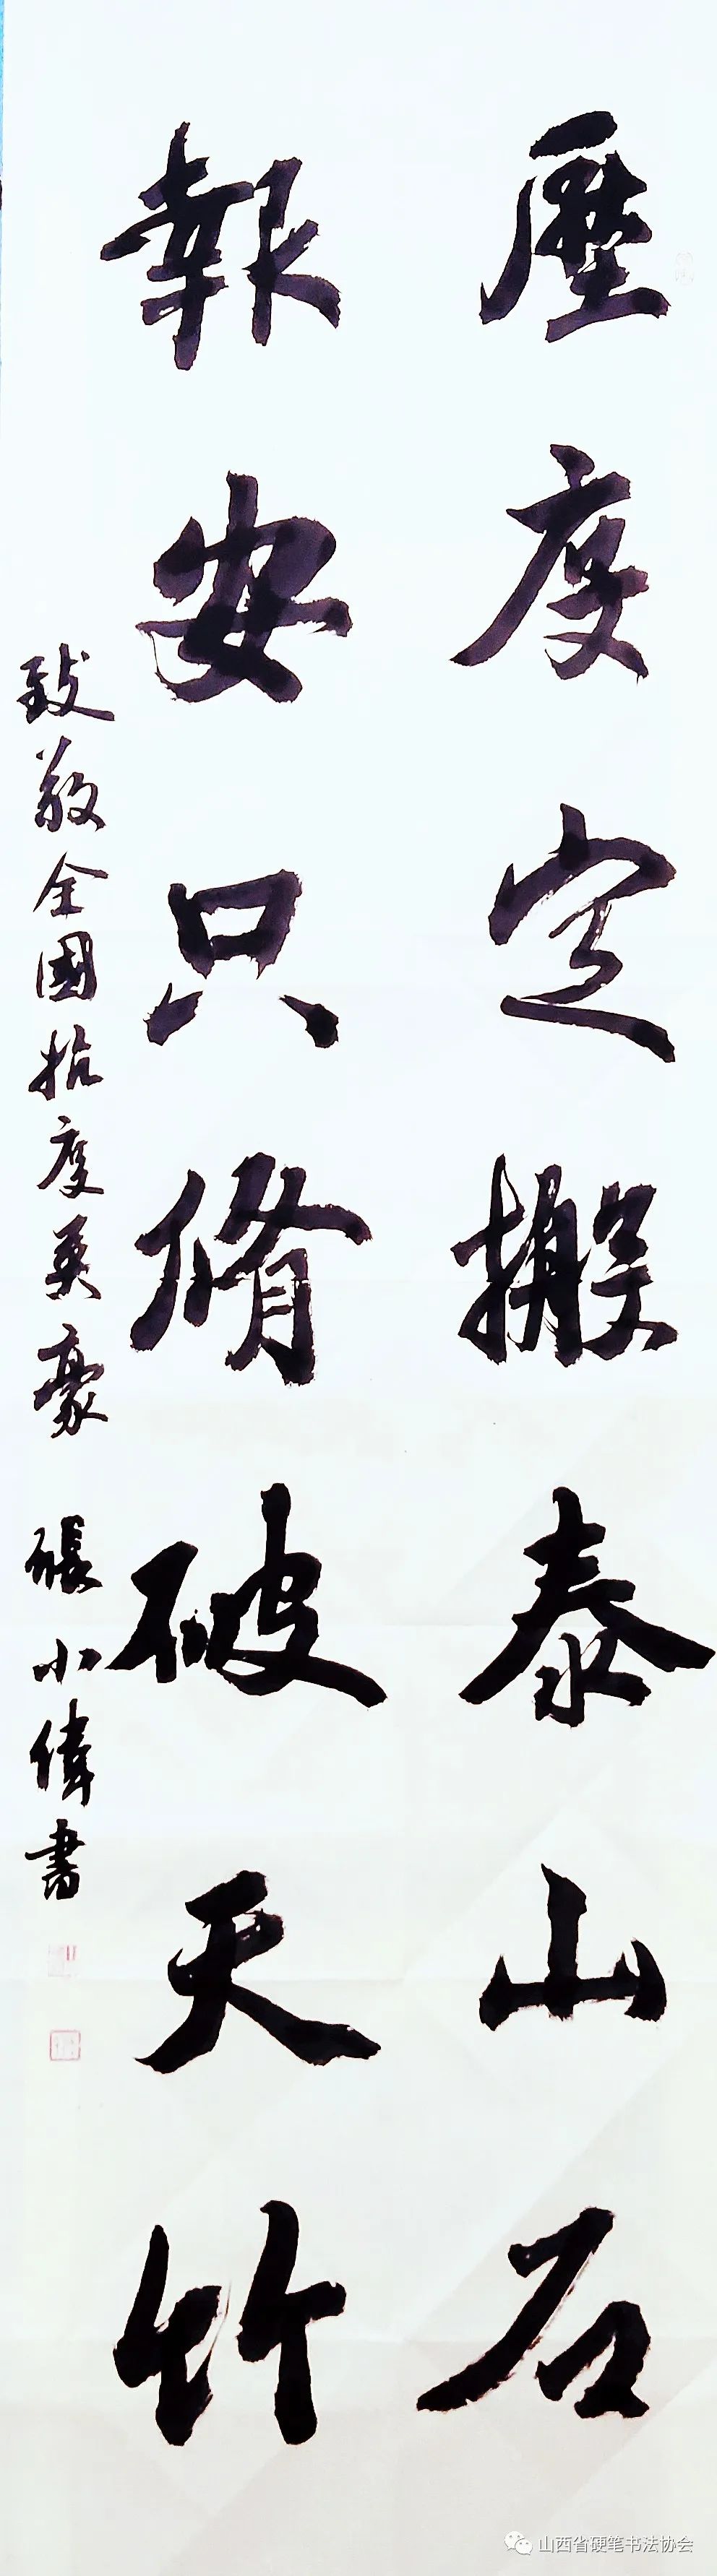 壓疫定搬泰山石
報安只脩破天竹
致敬全國抗疫英豪 張小偉書
山西省硬笔书法协会